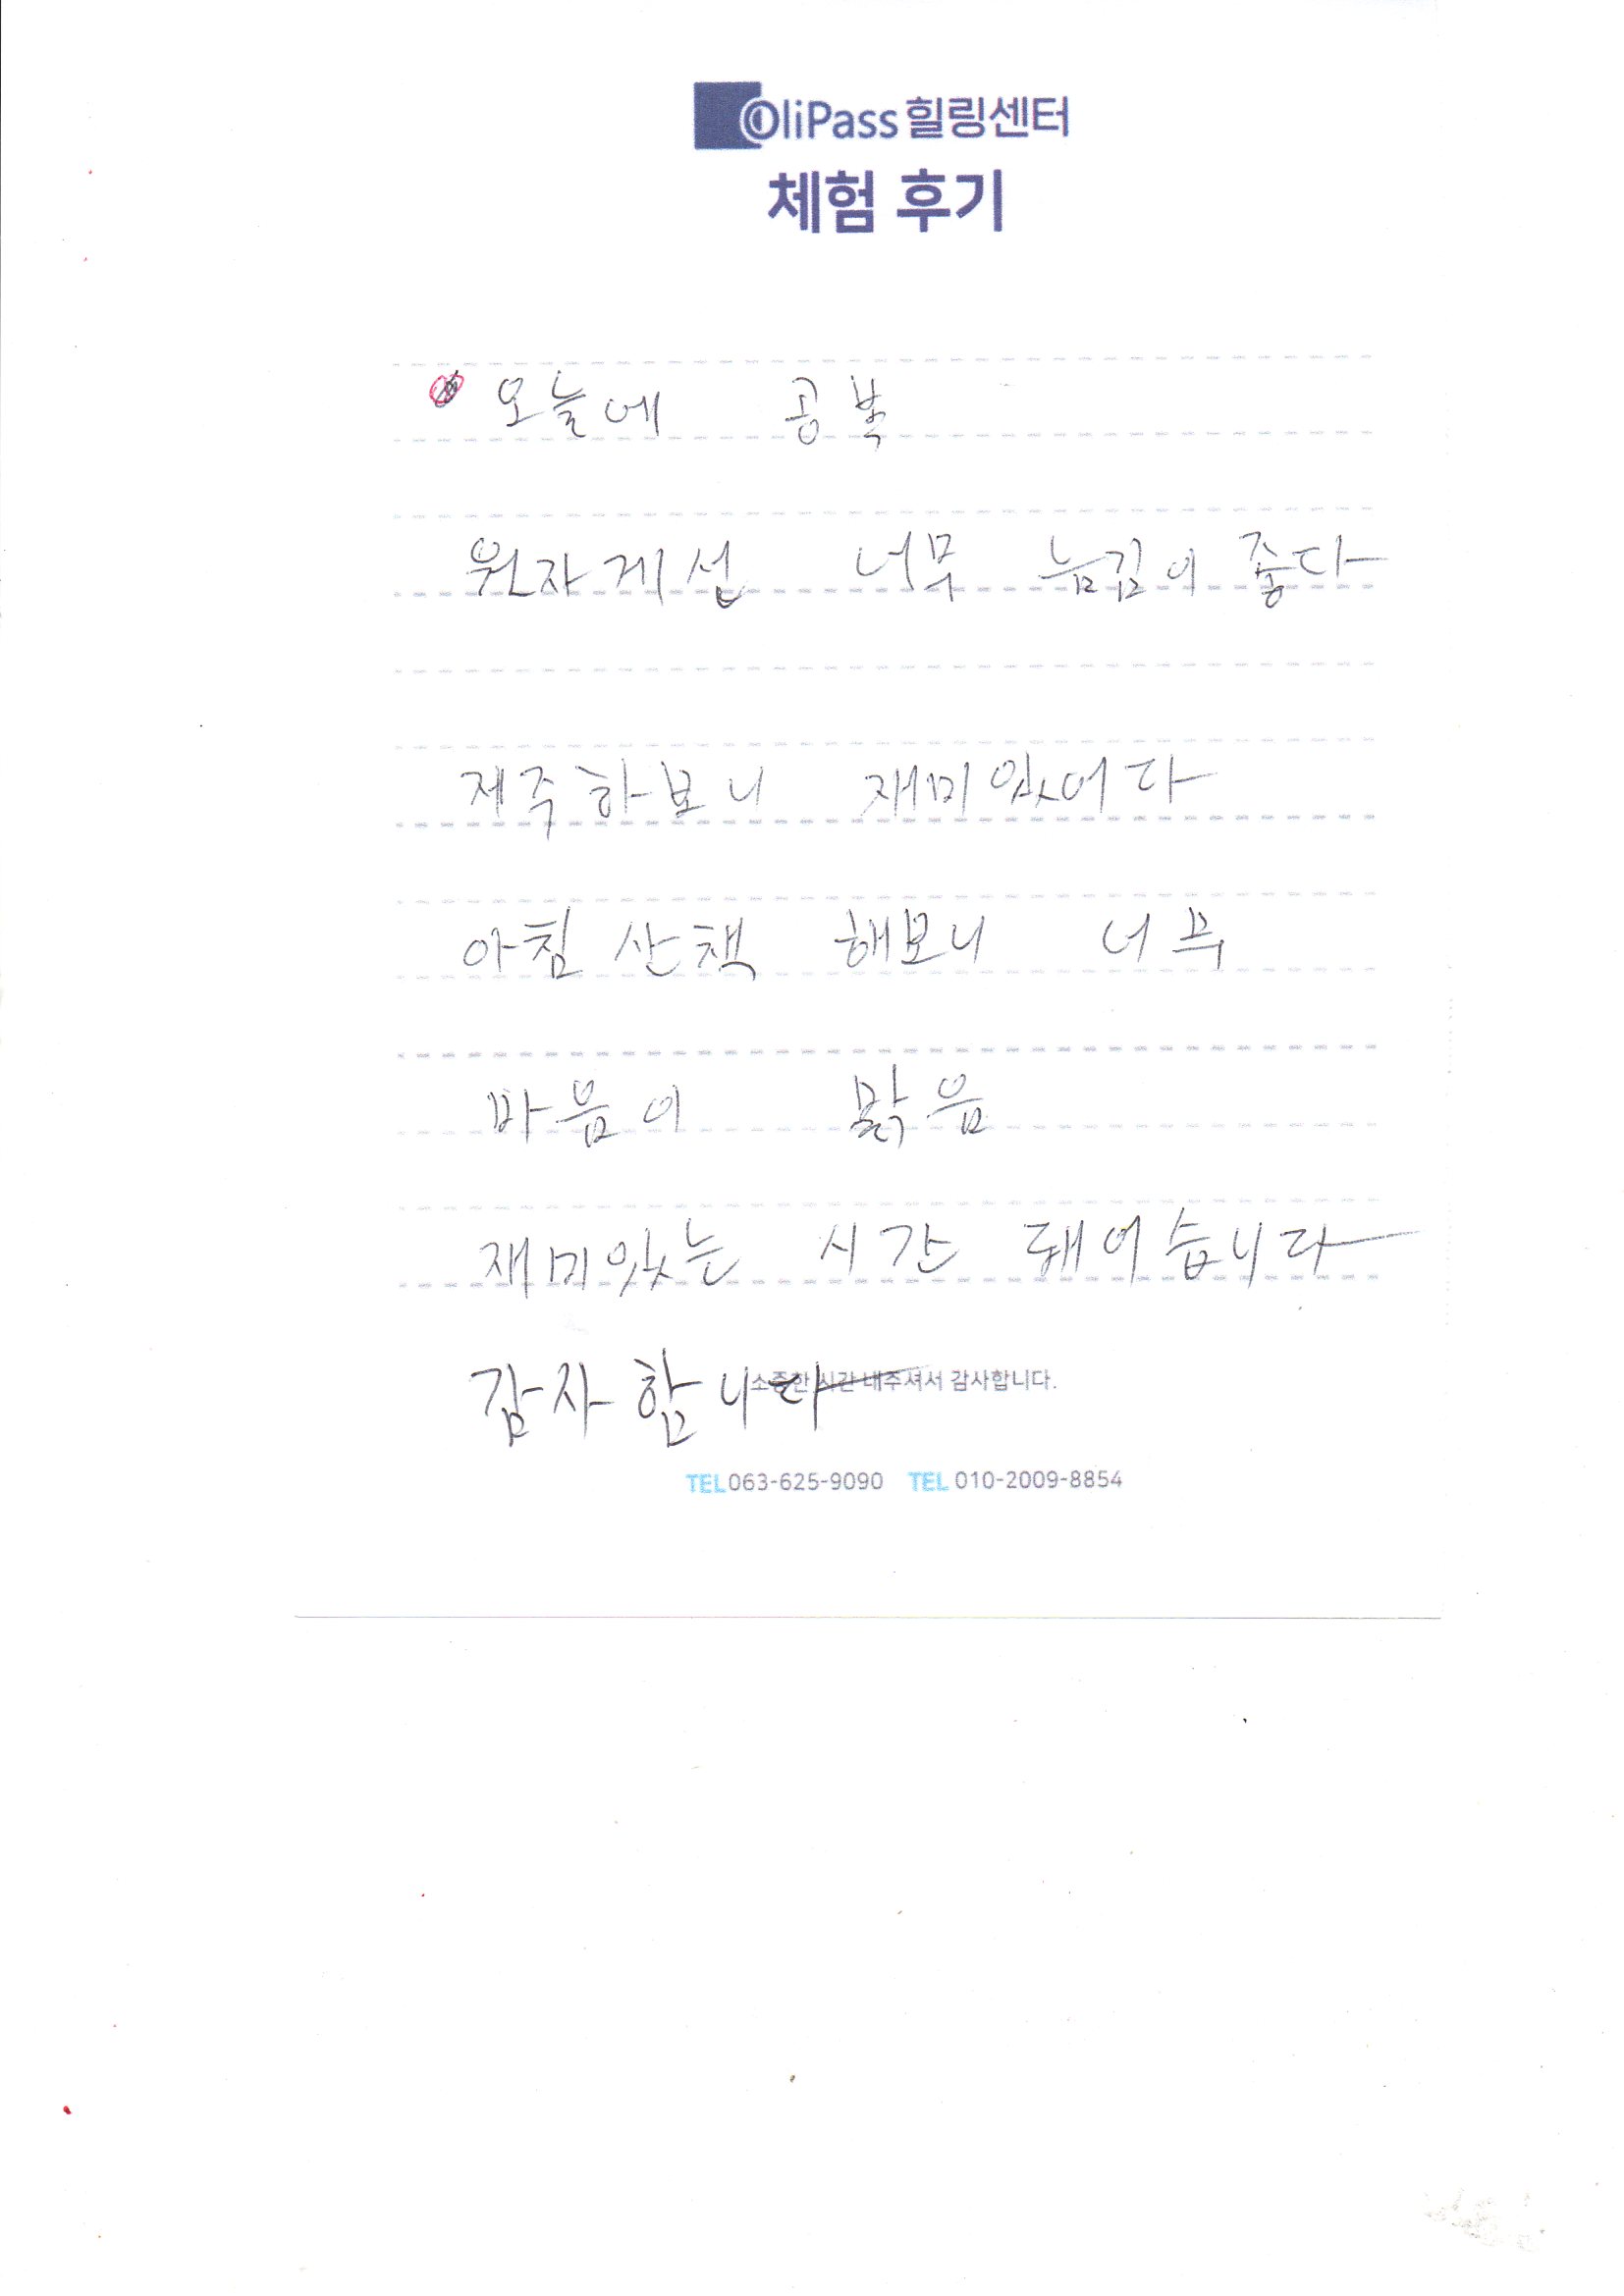 OliPass 힐링센터
체험 후기
오늘에 공부
원자게선 너무 늠낌이 좋다
제주하보니 재미있어다
아침 산책 해보니 너무
마음이 맑음
재미있는 시간 돼어습니다
소중한 시간 내주셔서 감사합니다.
감사합니다
TEL 063-625-9090 TEL 010-2009-8854